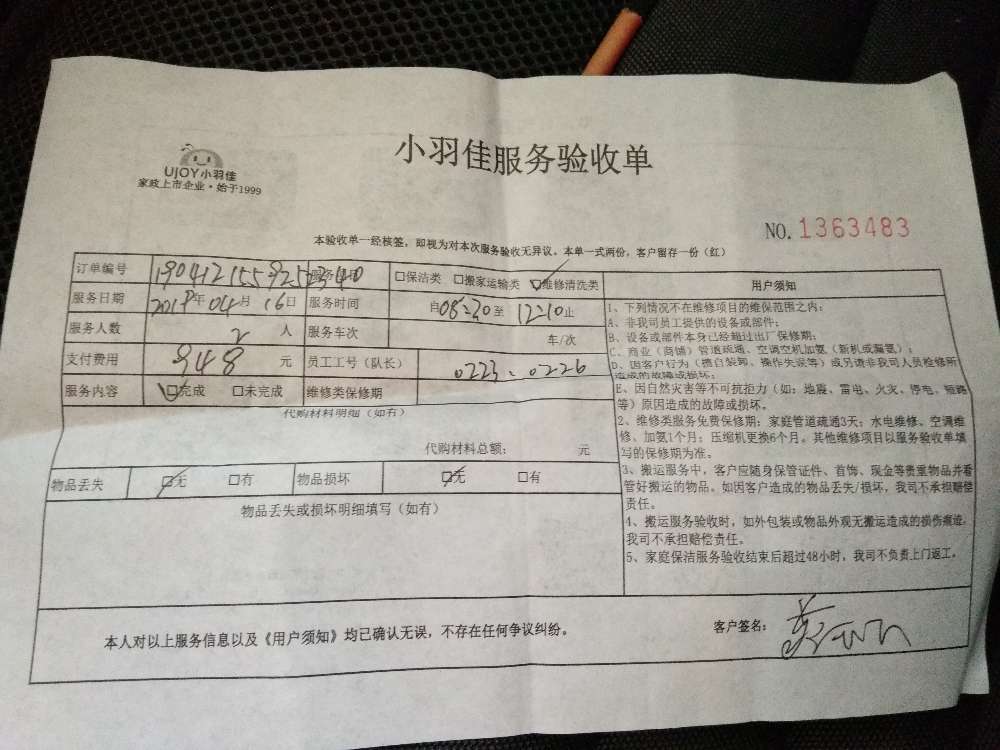 小羽佳服务验收单
UJOY小羽佳
家政上市企业·始于1999
NO. 1363483
本验收单一经核签，即视为对本次服务验收无异议。本单一式两份，客户留存一份（红）
订单编号 服务 □保洁类 □搬家运输类 ☑维修清洗类
服务日期 2019年04月16日 服务时间 自08:30至12:10止
服务人数 2人 服务车次 车/次
支付费用 948元 员工工号（队长） 0223、0226
服务内容 ☑完成 □未完成 维修类保修期
代购材料明细（如有）
代购材料总额： 元
物品丢失 ☑无 □有 物品损坏 ☑无 □有
物品丢失或损坏明细填写（如有）
用户须知
1、下列情况不在维修项目的维保范围之内：
A、非我司员工提供的设备或部件；
B、设备或部件本身已经超过出厂保修期；
C、商业（商铺）管道疏通、空调空机加氨（新机或漏氨）；
D、因客户行为（擅自装卸、操作失误等）或另请非我司人员检修所
造成的故障或损坏；
E、因自然灾害等不可抗拒力（如：地震、雷电、火灾、停电、短路
等）原因造成的故障或损坏。
2、维修类服务免费保修期：家庭管道疏通3天；水电维修、空调维
修、加氨1个月；压缩机更换6个月。其他维修项目以服务验收单填
写的保修期为准。
3、搬运服务中，客户应随身保管证件、首饰、现金等贵重物品并看
管好搬运的物品。如因客户造成的物品丢失/损坏，我司不承担赔偿
责任。
4、搬运服务验收时，如外包装或物品外观无搬运造成的损伤痕迹，
我司不承担赔偿责任。
5、家庭保洁服务验收结束后超过48小时，我司不负责上门返工。
本人对以上服务信息以及《用户须知》均已确认无误，不存在任何争议纠纷。
客户签名：